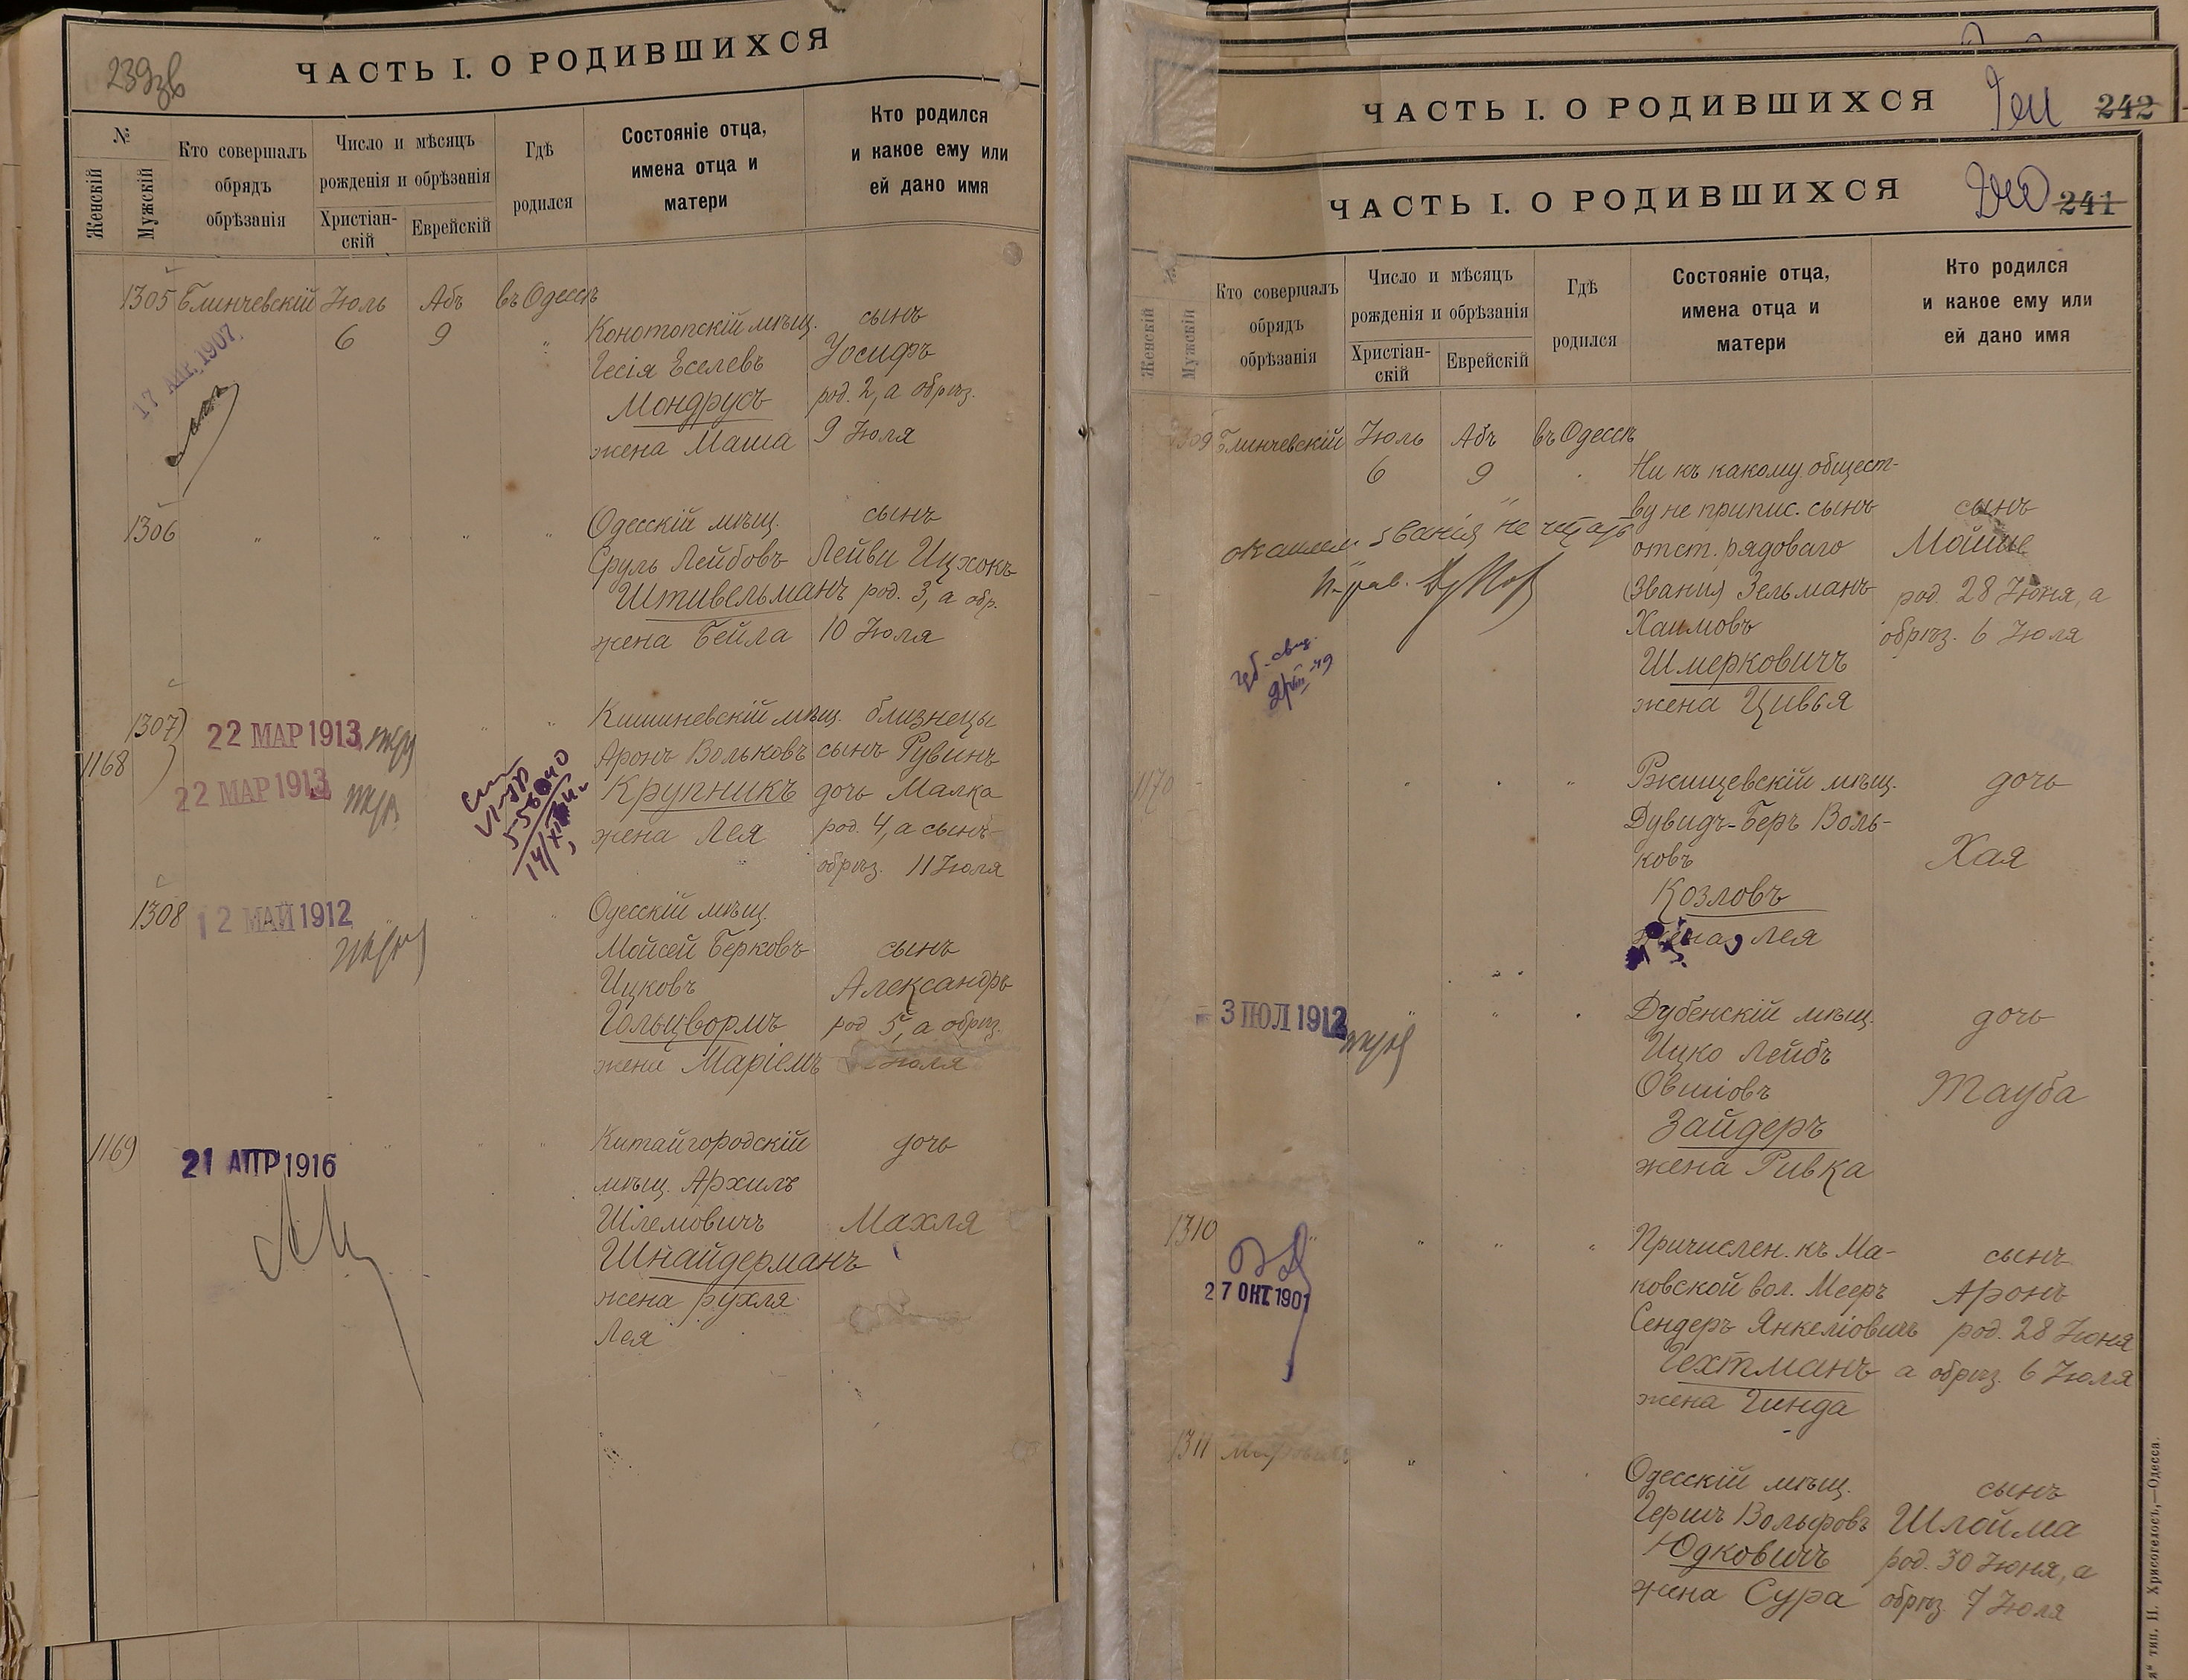 239зв
ЧАСТЬ I. О РОДИВШИХСЯ
№
Женскій
Мужскій
Кто совершалъ
обрядъ
обрѣзанія
Число и мѣсяцъ
рожденія и обрѣзанія
Христіан-
скій
Еврейскій
Гдѣ
родился
Состояніе отца,
имена отца и
матери
Кто родился
и какое ему или
ей дано имя
1305 Блинчевскій Іюль Абъ въ Одессѣ
6 9 "
17 АПР. 1907
Конотопскій мѣщ.
Гесія Еселевъ
Мондрусъ
жена Маша
сынъ
Іосифъ
род. 2, а обрѣз.
9 Іюля
1306 " " " "
Одесскій мѣщ.
Сруль Лейбовъ
Штивельманъ
жена Бейла
сынъ
Лейви Ицхокъ
род. 3, а обр.
10 Іюля
1307)
1168 )
22 МАР 1913
22 МАР 1913
Кишиневскій мѣщ.
Аронъ Вольковъ
Крупникъ
жена Лея
близнецы
сынъ Рувинъ
дочь Малка
род. 4, а сынъ
обрѣз. 11 Іюля
1308
12 МАЙ 1912
Одесскій мѣщ.
Мойсей Берковъ
Ицковъ
Гольцвормъ
жена Маріемъ
сынъ
Александръ
род 5, а обрѣз.
Іюля
1169
21 АПР 1916
Китайгородскій
мѣщ. Архилъ
Шлемовичъ
Шнайдерманъ
жена Рухля
Лея
дочь
Махля
ЧАСТЬ I. О РОДИВШИХСЯ
242
ЧАСТЬ I. О РОДИВШИХСЯ
241
№
Женскій
Мужскій
Кто совершалъ
обрядъ
обрѣзанія
Число и мѣсяцъ
рожденія и обрѣзанія
Христіан-
скій
Еврейскій
Гдѣ
родился
Состояніе отца,
имена отца и
матери
Кто родился
и какое ему или
ей дано имя
1309 Блинчевскій Іюль Абъ въ Одессѣ
6 9 "
званія не читать
Ни къ какому общест-
ву не припис. сынъ
отст. рядоваго
(Званія) Зельманъ
Хаимовъ
Шмерковичъ
жена Цивья
сынъ
Мойше
род. 28 Іюня, а
обрѣз. 6 Іюля
1170
Ржищевскій мѣщ.
Дувидъ-Беръ Воль-
ковъ
Козловъ
жена Лея
дочь
Хая
3 ІЮЛ 1912
Дубенскій мѣщ.
Ицко Лейбъ
Овшіовъ
Зайдеръ
жена Ривка
дочь
Тауба
1310
27 ОКТ. 1901
Причислен. къ Ма-
ковской вол. Мееръ
Сендеръ Янкеліовичъ
Гехтманъ
жена Гинда
сынъ
Аронъ
род. 28 Іюня
а обрѣз. 6 Іюля
1311
Одесскій мѣщ.
Гершъ Вольфовъ
Юдковичъ
жена Сура
сынъ
Шлойма
род. 30 Іюня, а
обрѣз. 7 Іюля
тип. И. Хрисогелосъ,—Одесса.